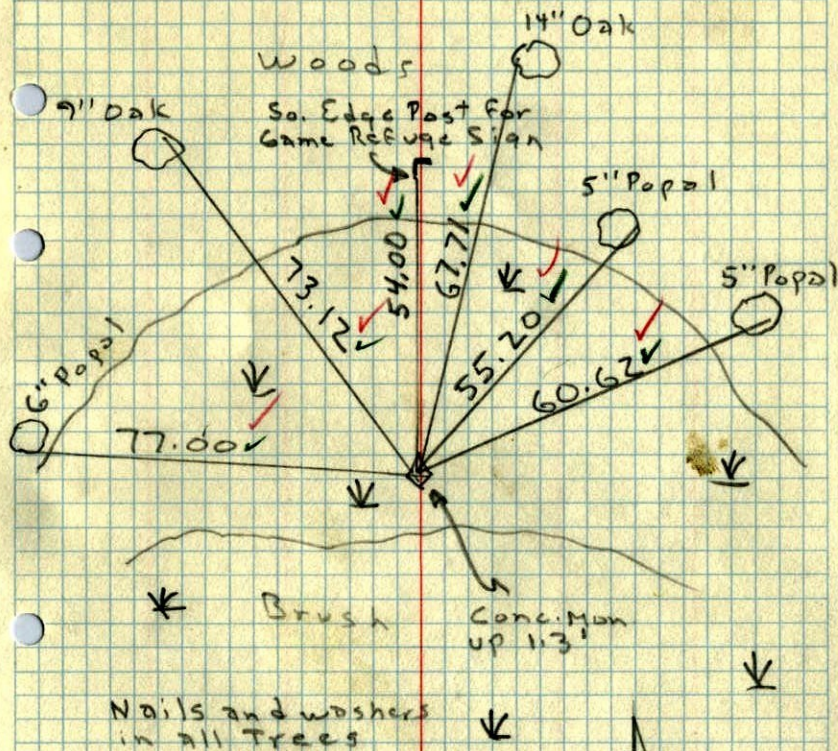 14" Oak
Woods
9" Oak
So. Edge Post for
Game Refuge Sign
5" Popal
5" Popal
6" Popal
73.12
54.00
67.71
55.20
60.62
77.00
Brush
Conc. Mon
up 1.3'
Nails and washers
in all Trees